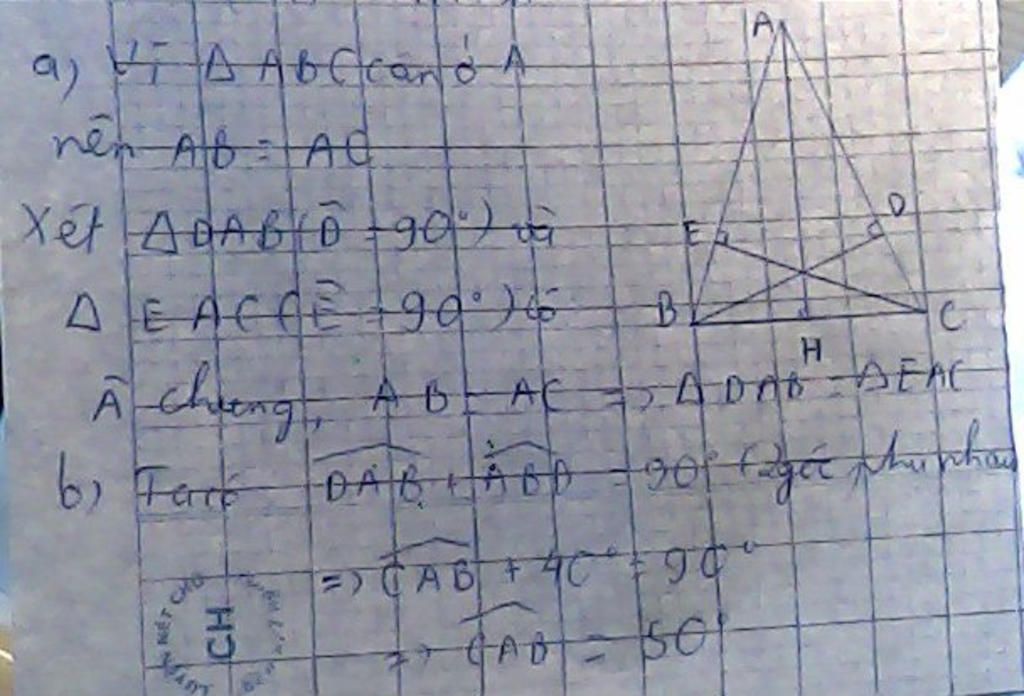 a) Vì Δ ABC cân ở A
nên AB = AC
Xét Δ DAB (D̂ = 90°) và
Δ EAC (Ê = 90°) có
Â chung, AB = AC => Δ DAB = Δ EAC
b) Ta có DAB + ABD = 90° (2 góc phụ nhau
=> CAB + 40° = 90°
=> CAB = 50°
A
E
D
B
C
H
NÉT CHỮ
CH
LUYỆN